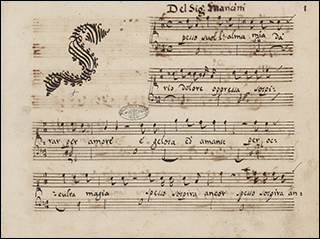 Del Sig. Mancini
1
S
pesso suol l'alma mia da
rio dolore oppressa sospi-
rar per amore è gelosa ed amante per oc-
culta magia spesso sospira ancor spesso sospira an-